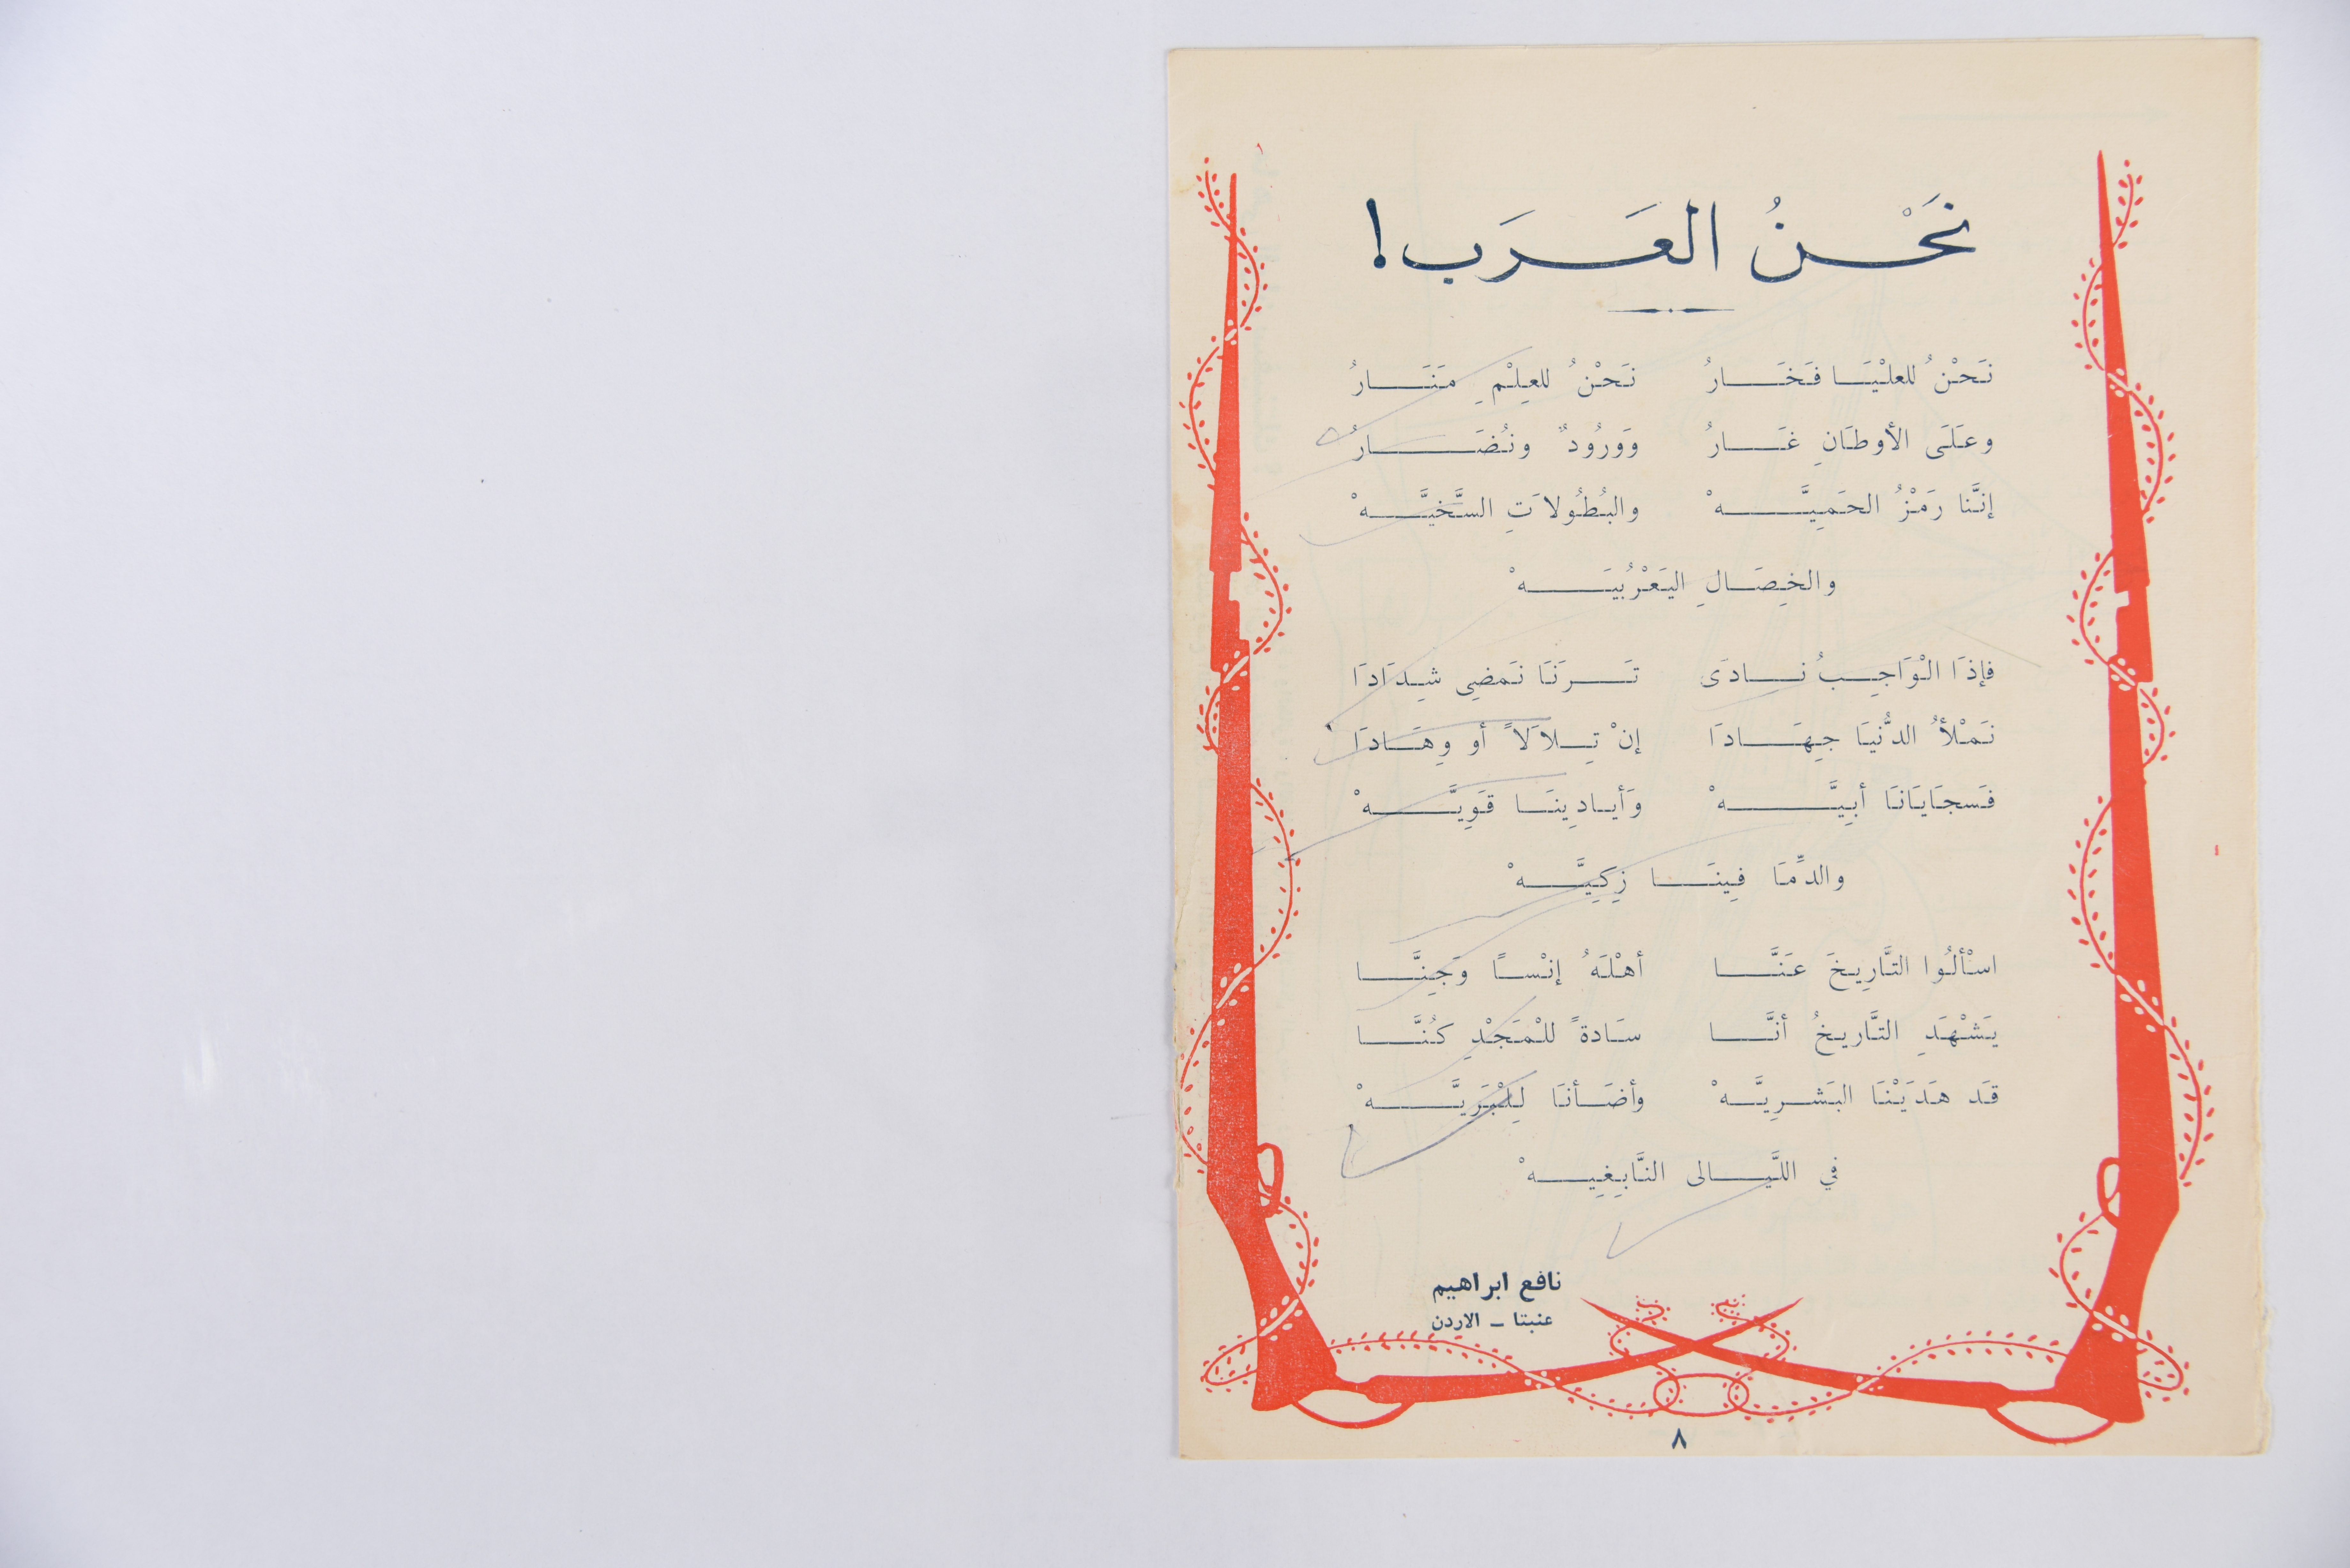 نَحْنُ العَرَب!
نَحْنُ للعلْيَا فَخَارُ نَحْنُ للعِلِمْ مَنَارُ
وعَلَى الأوطَانِ غَارُ وَوَرُودٌ ونُضَارُ
إنَّنا رَمْزُ الحَمِيَّهْ والبُطُولاَتِ السَّخيَّهْ
والخِصَالِ اليَعْرُبيَهْ
فإذَا الْوَاجِبُ نادَى تَرَنَا نَمضِي شِدَادَا
نَمْلأُ الدُّنيَا جِهَادَا إنْ تِلاَلاً أو وِهَادَا
فَسجَايَانَا أبِيَّهْ وَأيادِينَا قَوِيَّهْ
والدِّمَا فِينَا زِكِيَّهْ
اسْألُوا التَّارِيخَ عَنَّا أهْلَهُ إنْساً وَجِنَّا
يَشْهَدِ التَّاريخُ أنَّا سَادةً للْمَجْدِ كُنَّا
قَد هَدَيْنَا البَشرِيَّهْ وأضَأنَا لِلْبَرِيَّهْ
في اللَّيالى النَّابِغِيهْ
نافع ابراهيم
عنبتا – الاردن
٨